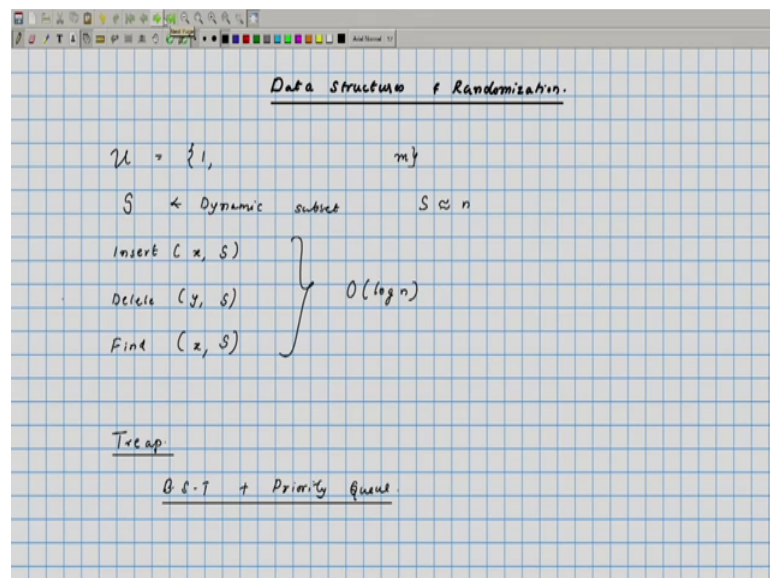 Next Page
Data Structures & Randomization.
U = {1, m}
S ← Dynamic subset S ≈ n
Insert (x, S)
Delete (y, S) O(log n)
Find (x, S)
Treap.
B.S.T + Priority Queue.